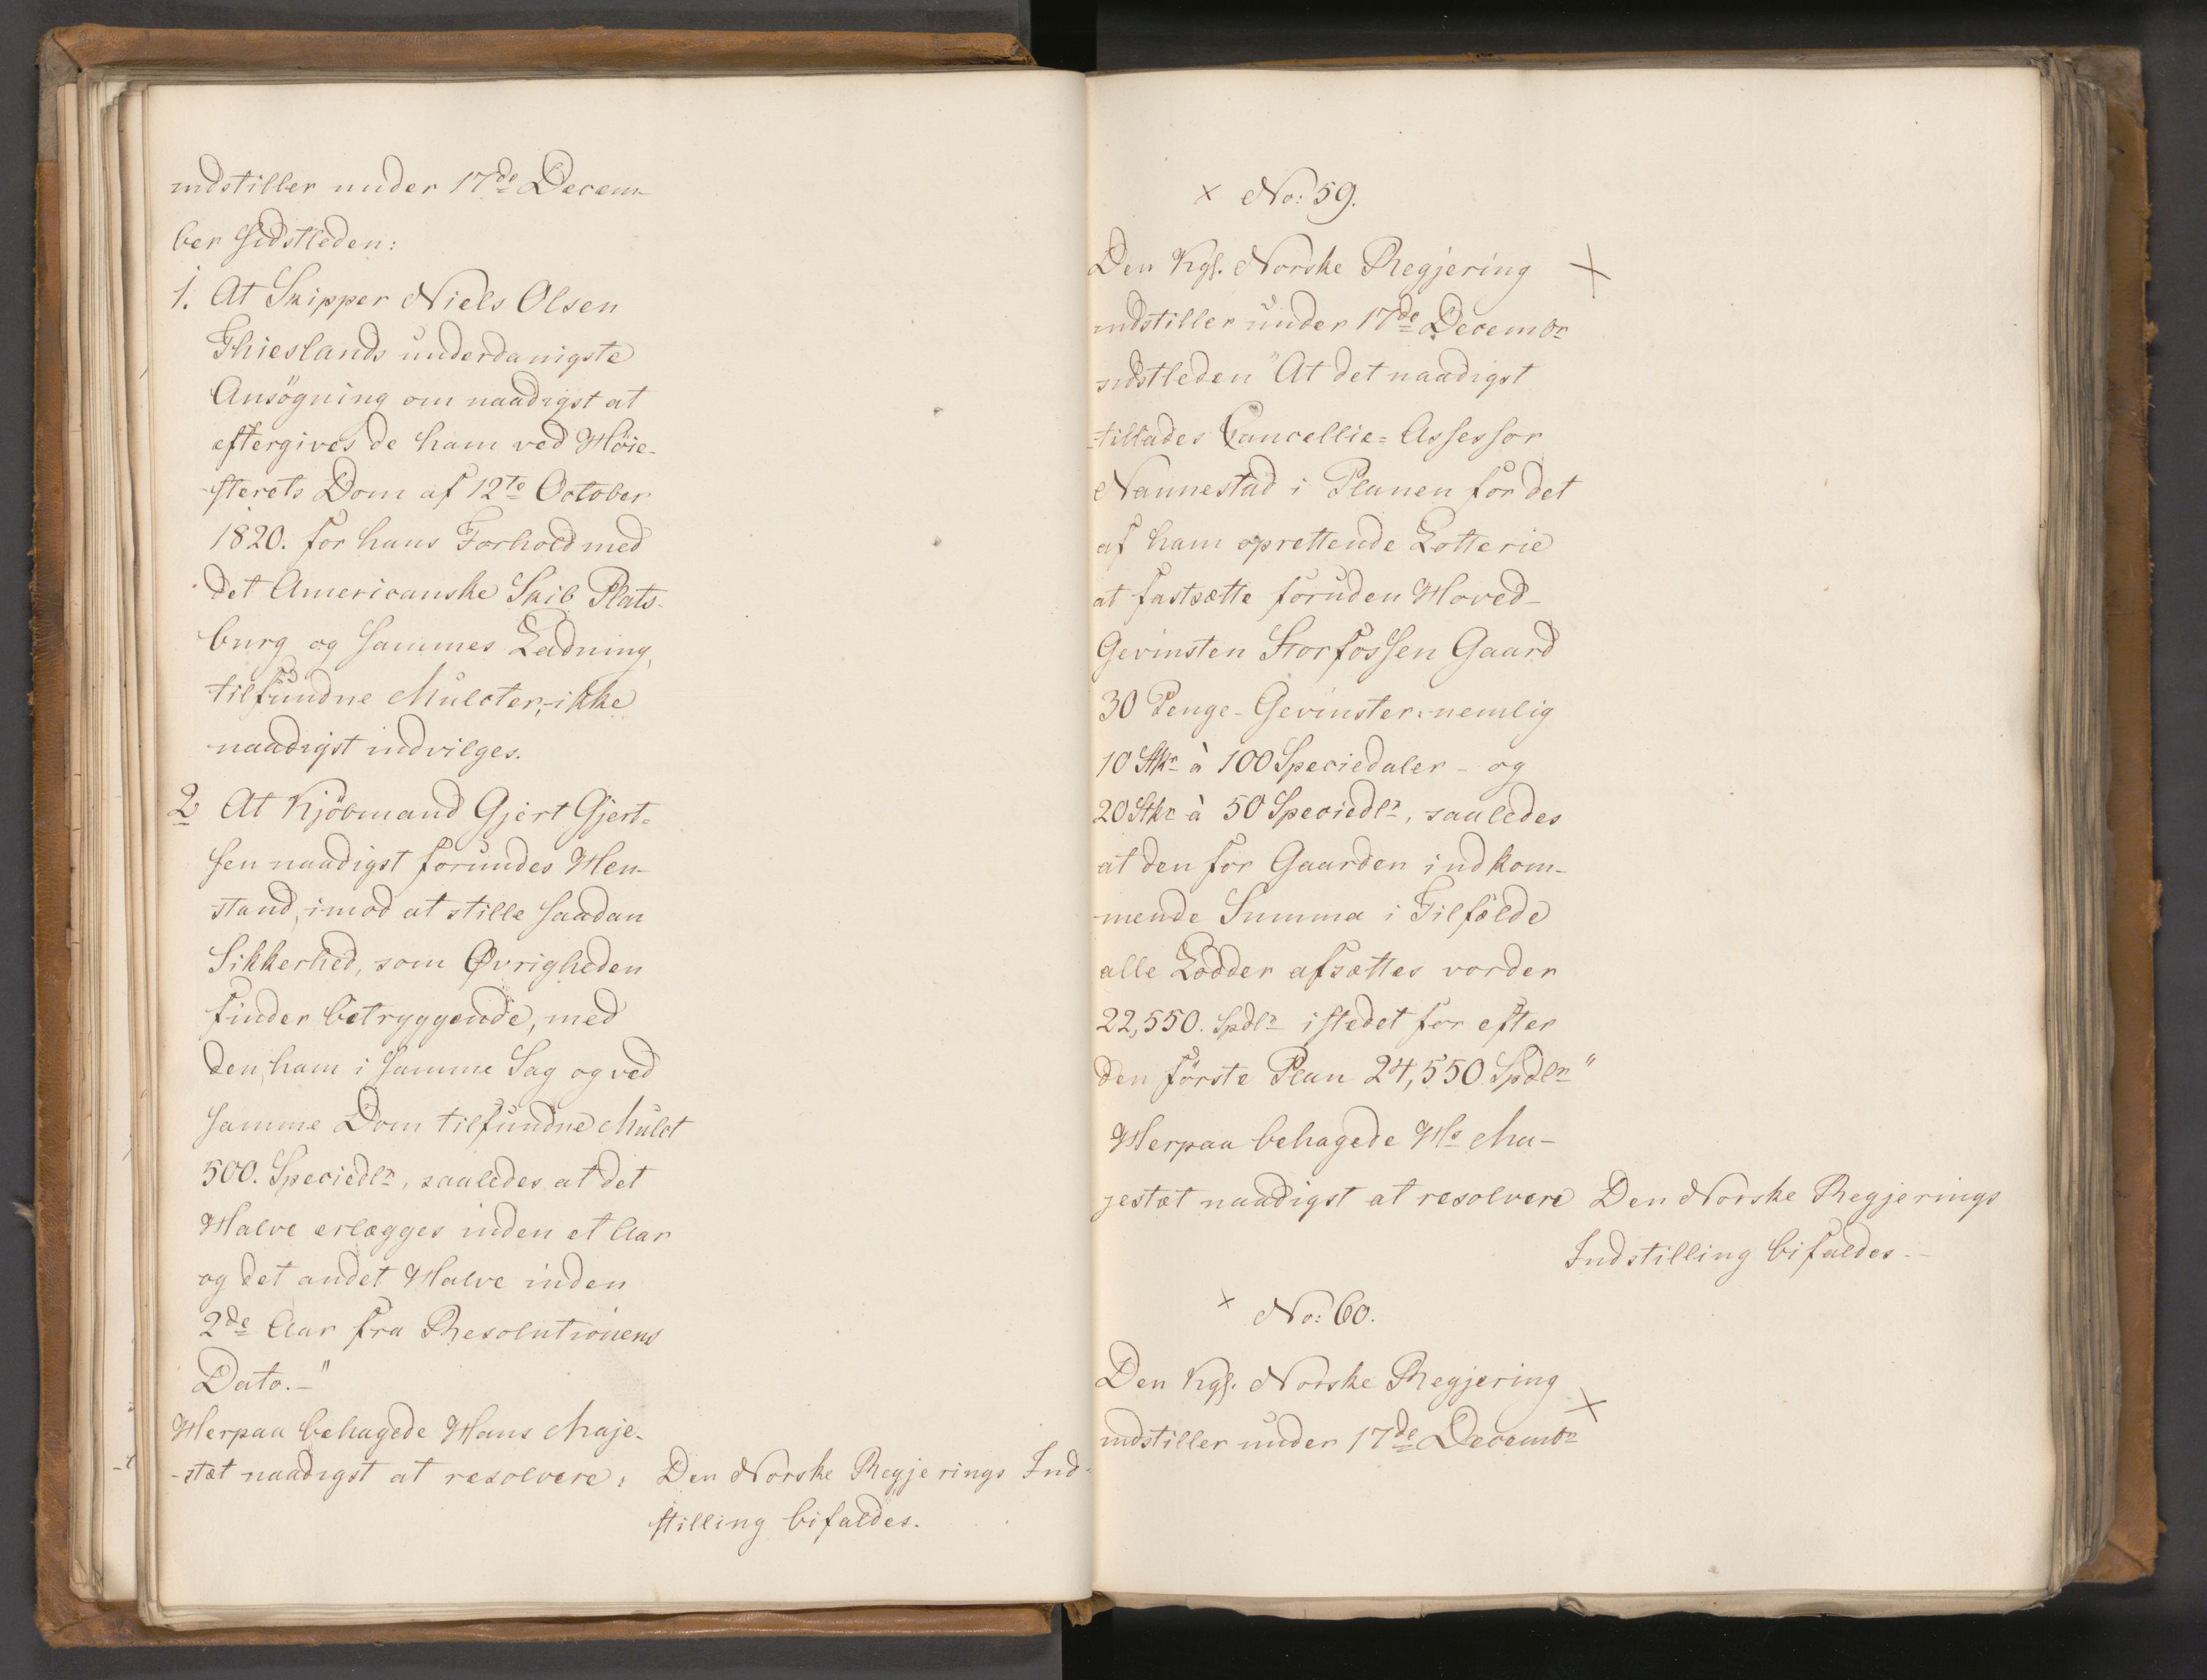 indstiller under 17de Decem-
ber sidstleden:
1. At Skipper Niels Olsen
Thieslands underdanigste
Ansögning om naadigst at
eftergives de ham ved Höie-
sterets Dom af 12te October
1820. for hans Forhold med
det Americanske Skib Plats-
burg og sammes Ladning,
tilfundne Mulcter, ikke
naadigst indvilges.
2 At Kjöbmand Gjert Gjert-
sen naadigst forundes Hen-
stand, imod at stille saadan
Sikkerhed, som Øvrigheden
finder betryggende, med
den, ham i samme Sag og ved
samme Dom tilfundne Mulct
500. Speciedlr, saaledes at det
Halve erlægges inden et Aar
og det andet Halve inden
2de Aar fra Resolutionens
Dato.-"
Herpaa behagede Hans Maje-
-stæt naadigst at resolvere: Den Norske Regjerings Ind-
stilling bifaldes.
× No: 59.
Den Kgl. Norske Regjering ×
indstiller under 17de Decembr
sidstleden "At det naadigst
tillades Cancellie=Assessor
Nannestad i Planen for det
af ham oprettende Lotterie
at fastsætte foruden Hoved-
Gevinsten Storfossen Gaard
30 Penge-Gevinster: nemlig
10 Stkr à 100 Speciedaler - og
20 Stkr à 50 Speciedlr, saaledes
at den for Gaarden indkom-
mende Summa i Tilfælde
alle Lodder afsættes vorder
22,550. Spdlr istedet for efter
den förste Plan 24,550 Spdlr"
Herpaa behagede Hs Ma-
jestæt naadigst at resolvere Den Norske Regjerings
Indstilling bifaldes.-
× No: 60.
Den Kgl. Norske Regjering ×
indstiller under 17de Decembr